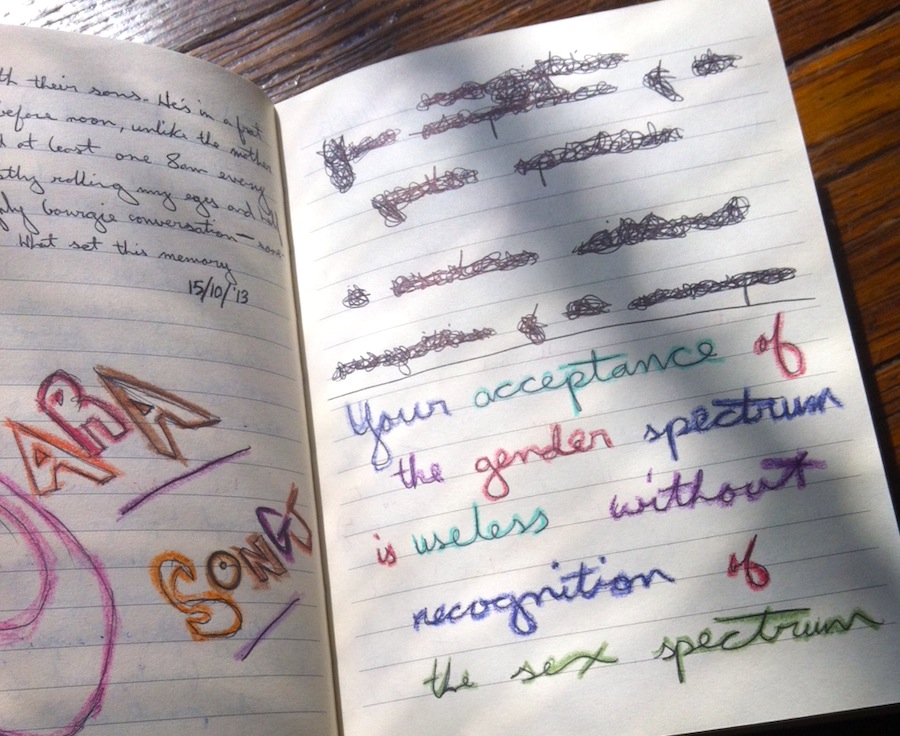 th their sons. He's in a first
before noon, unlike the mother
d at least one 8am every
tly rolling my eyes and
ply bourgie conversation —
What set this memory
15/10/'13
ARA
SONG
Your acceptance of
the gender spectrum
is useless without
recognition of
the sex spectrum